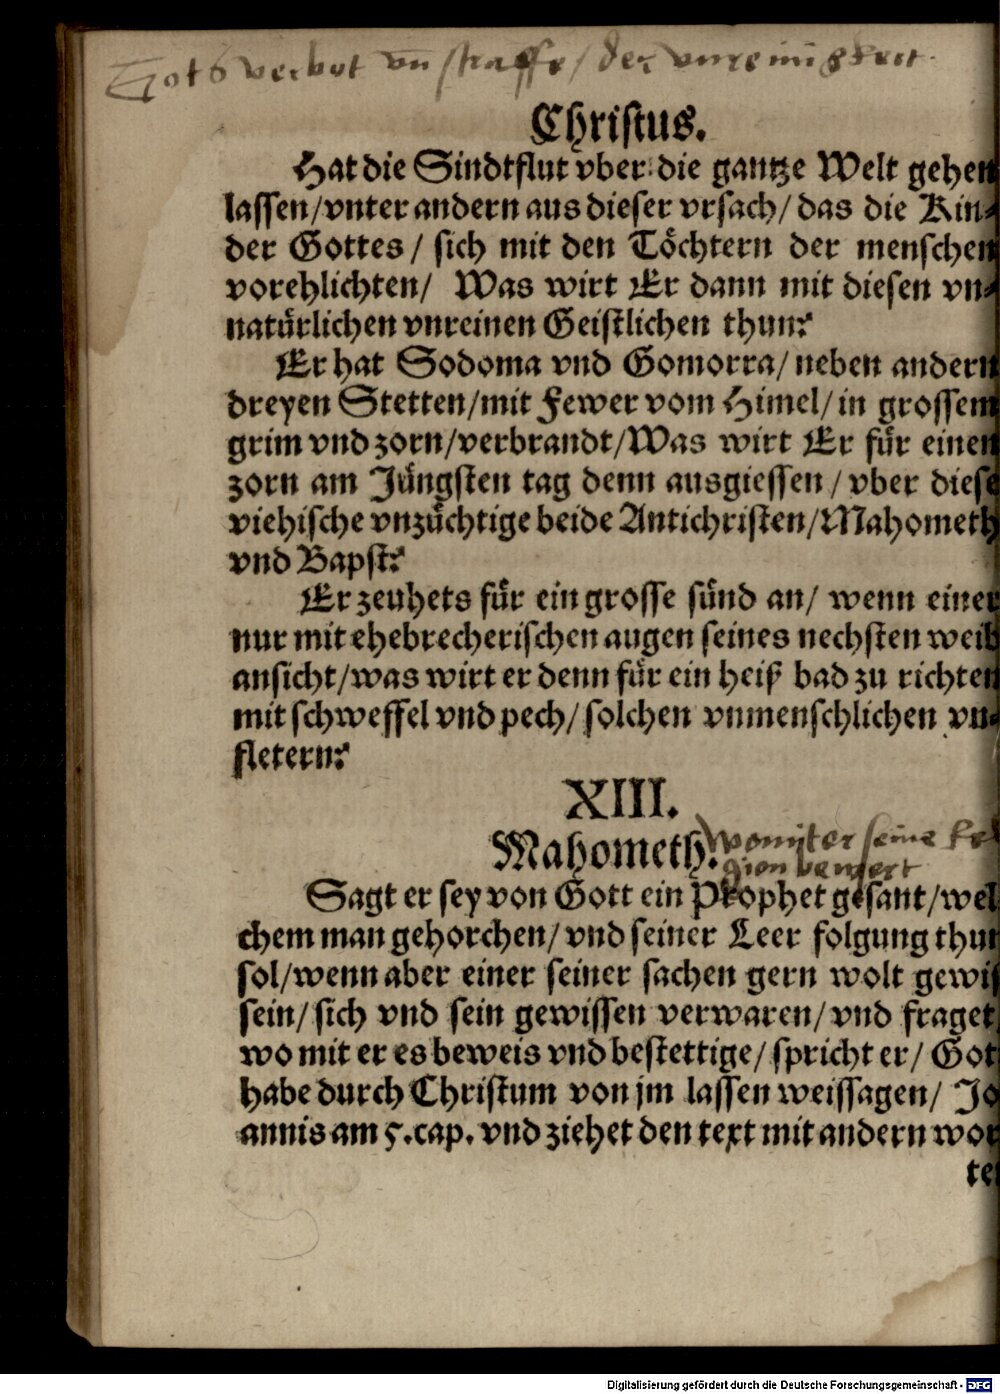 Gots verbot vn̄ straffe / der vnreinigkeit
Christus.
Hat die Sindtflut vber die gantze Welt gehen
lassen/vnter andern aus dieser vrsach/das die Kin⸗
der Gottes / sich mit den Töchtern der menschen
vorehlichten/ Was wirt Er dann mit diesen vn⸗
natürlichen vnreinen Geistlichen thun?
Er hat Sodoma vnd Gomorra/neben andern
dreyen Stetten/mit Fewer vom Himel/in grossem
grim vnd zorn/verbrandt/Was wirt Er für einen
zorn am Jüngsten tag denn ausgiessen/vber diese
viehische vnzüchtige beide Antichristen/Mahometh
vnd Bapst?
Er zeuhets für ein grosse sünd an/ wenn einer
nur mit ehebrecherischen augen seines nechsten weib
ansicht/was wirt er denn für ein heiß bad zu richten
mit schweffel vnd pech/solchen vnmenschlichen vn⸗
fletern?
XIII.
Mahometh.
womit er seine Re
gion bewert
Sagt er sey von Gott ein Prophet gesant/wel
chem man gehorchen/vnd seiner Leer folgung thun
sol/wenn aber einer seiner sachen gern wolt gewis
sein/sich vnd sein gewissen verwaren/vnd fraget
wo mit er es beweis vnd bestettige/spricht er/Got
habe durch Christum von jm lassen weissagen/ Jo
annis am 5.cap. vnd ziehet den text mit andern wor
te
Digitalisierung gefördert durch die Deutsche Forschungsgemeinschaft - DFG